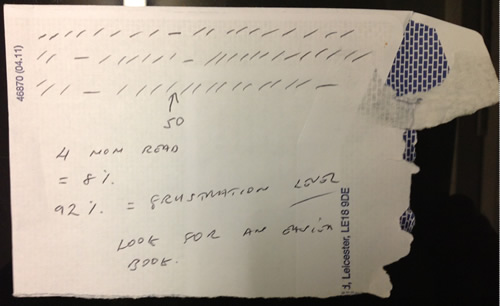 46870 (04.11)
50
4 NON READ
= 8%
92% = FRUSTRATION LEVEL
LOOK FOR AN EASIER
BOOK.
Leicester, LE18 9DE